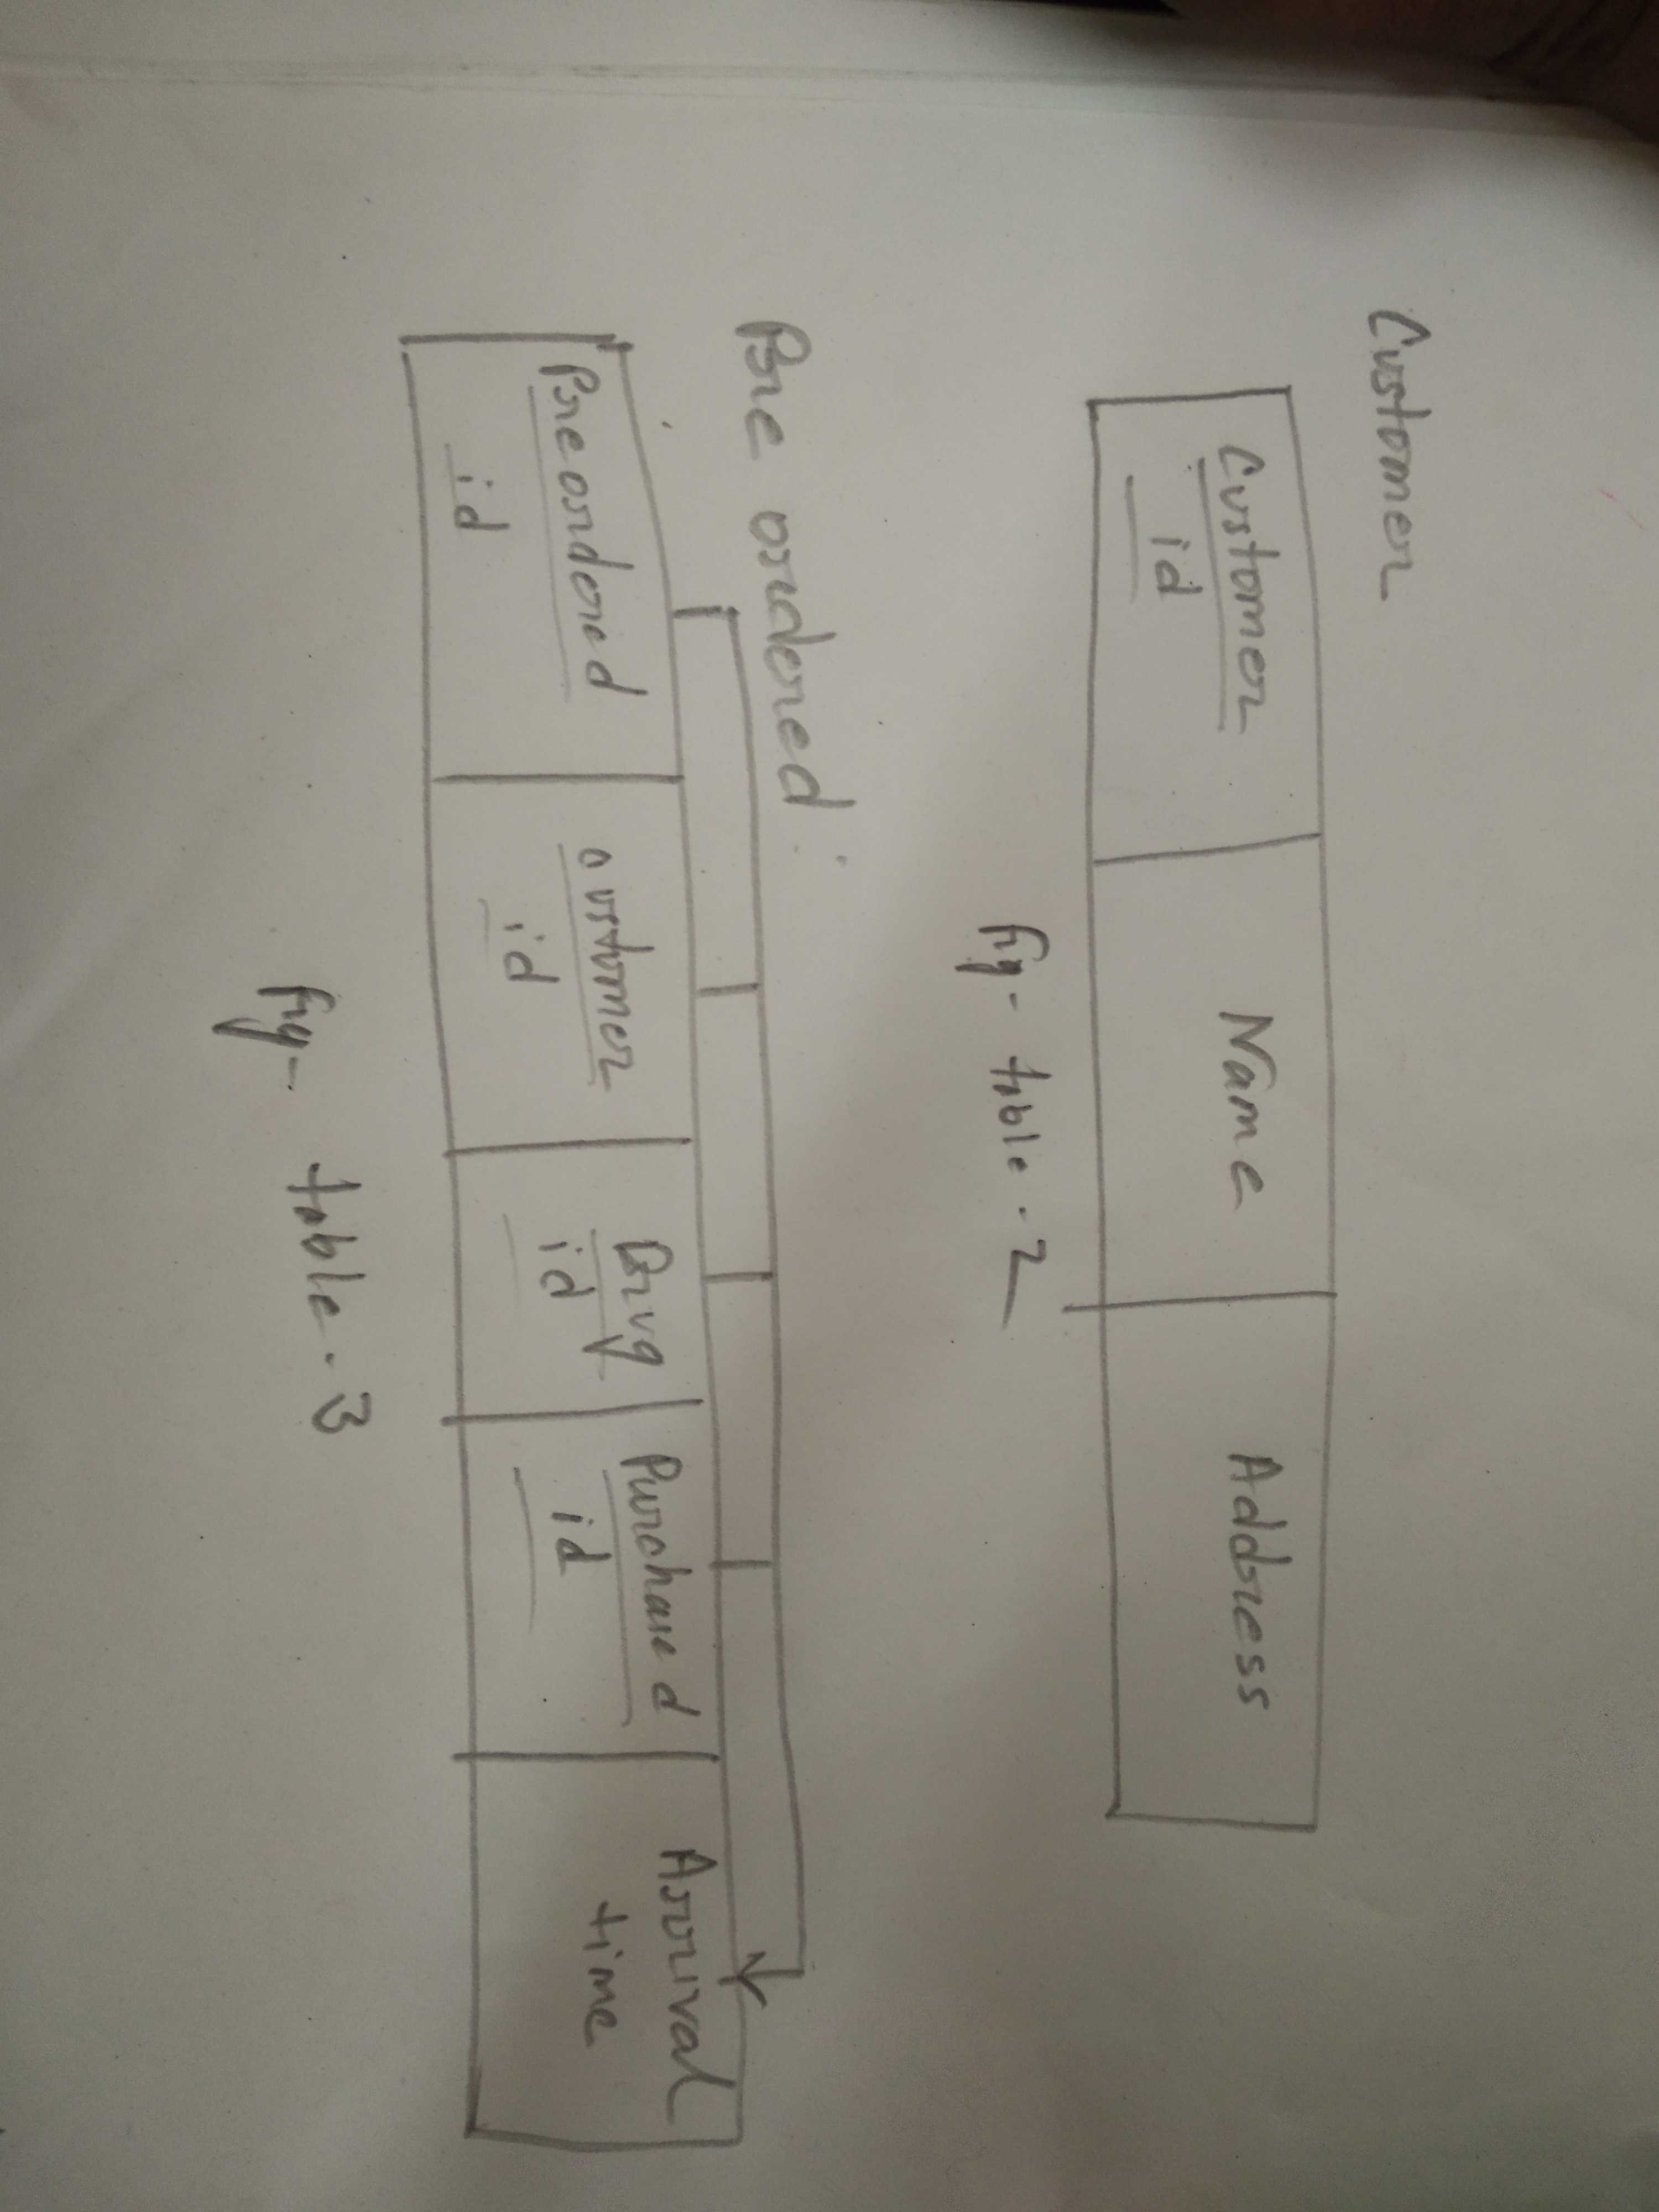 Customer
Customer id
Name
Address
fig- table-2
Pre ordered:
Preordered id
customer id
Drug id
Purchased id
Arrival time
fig- table-3